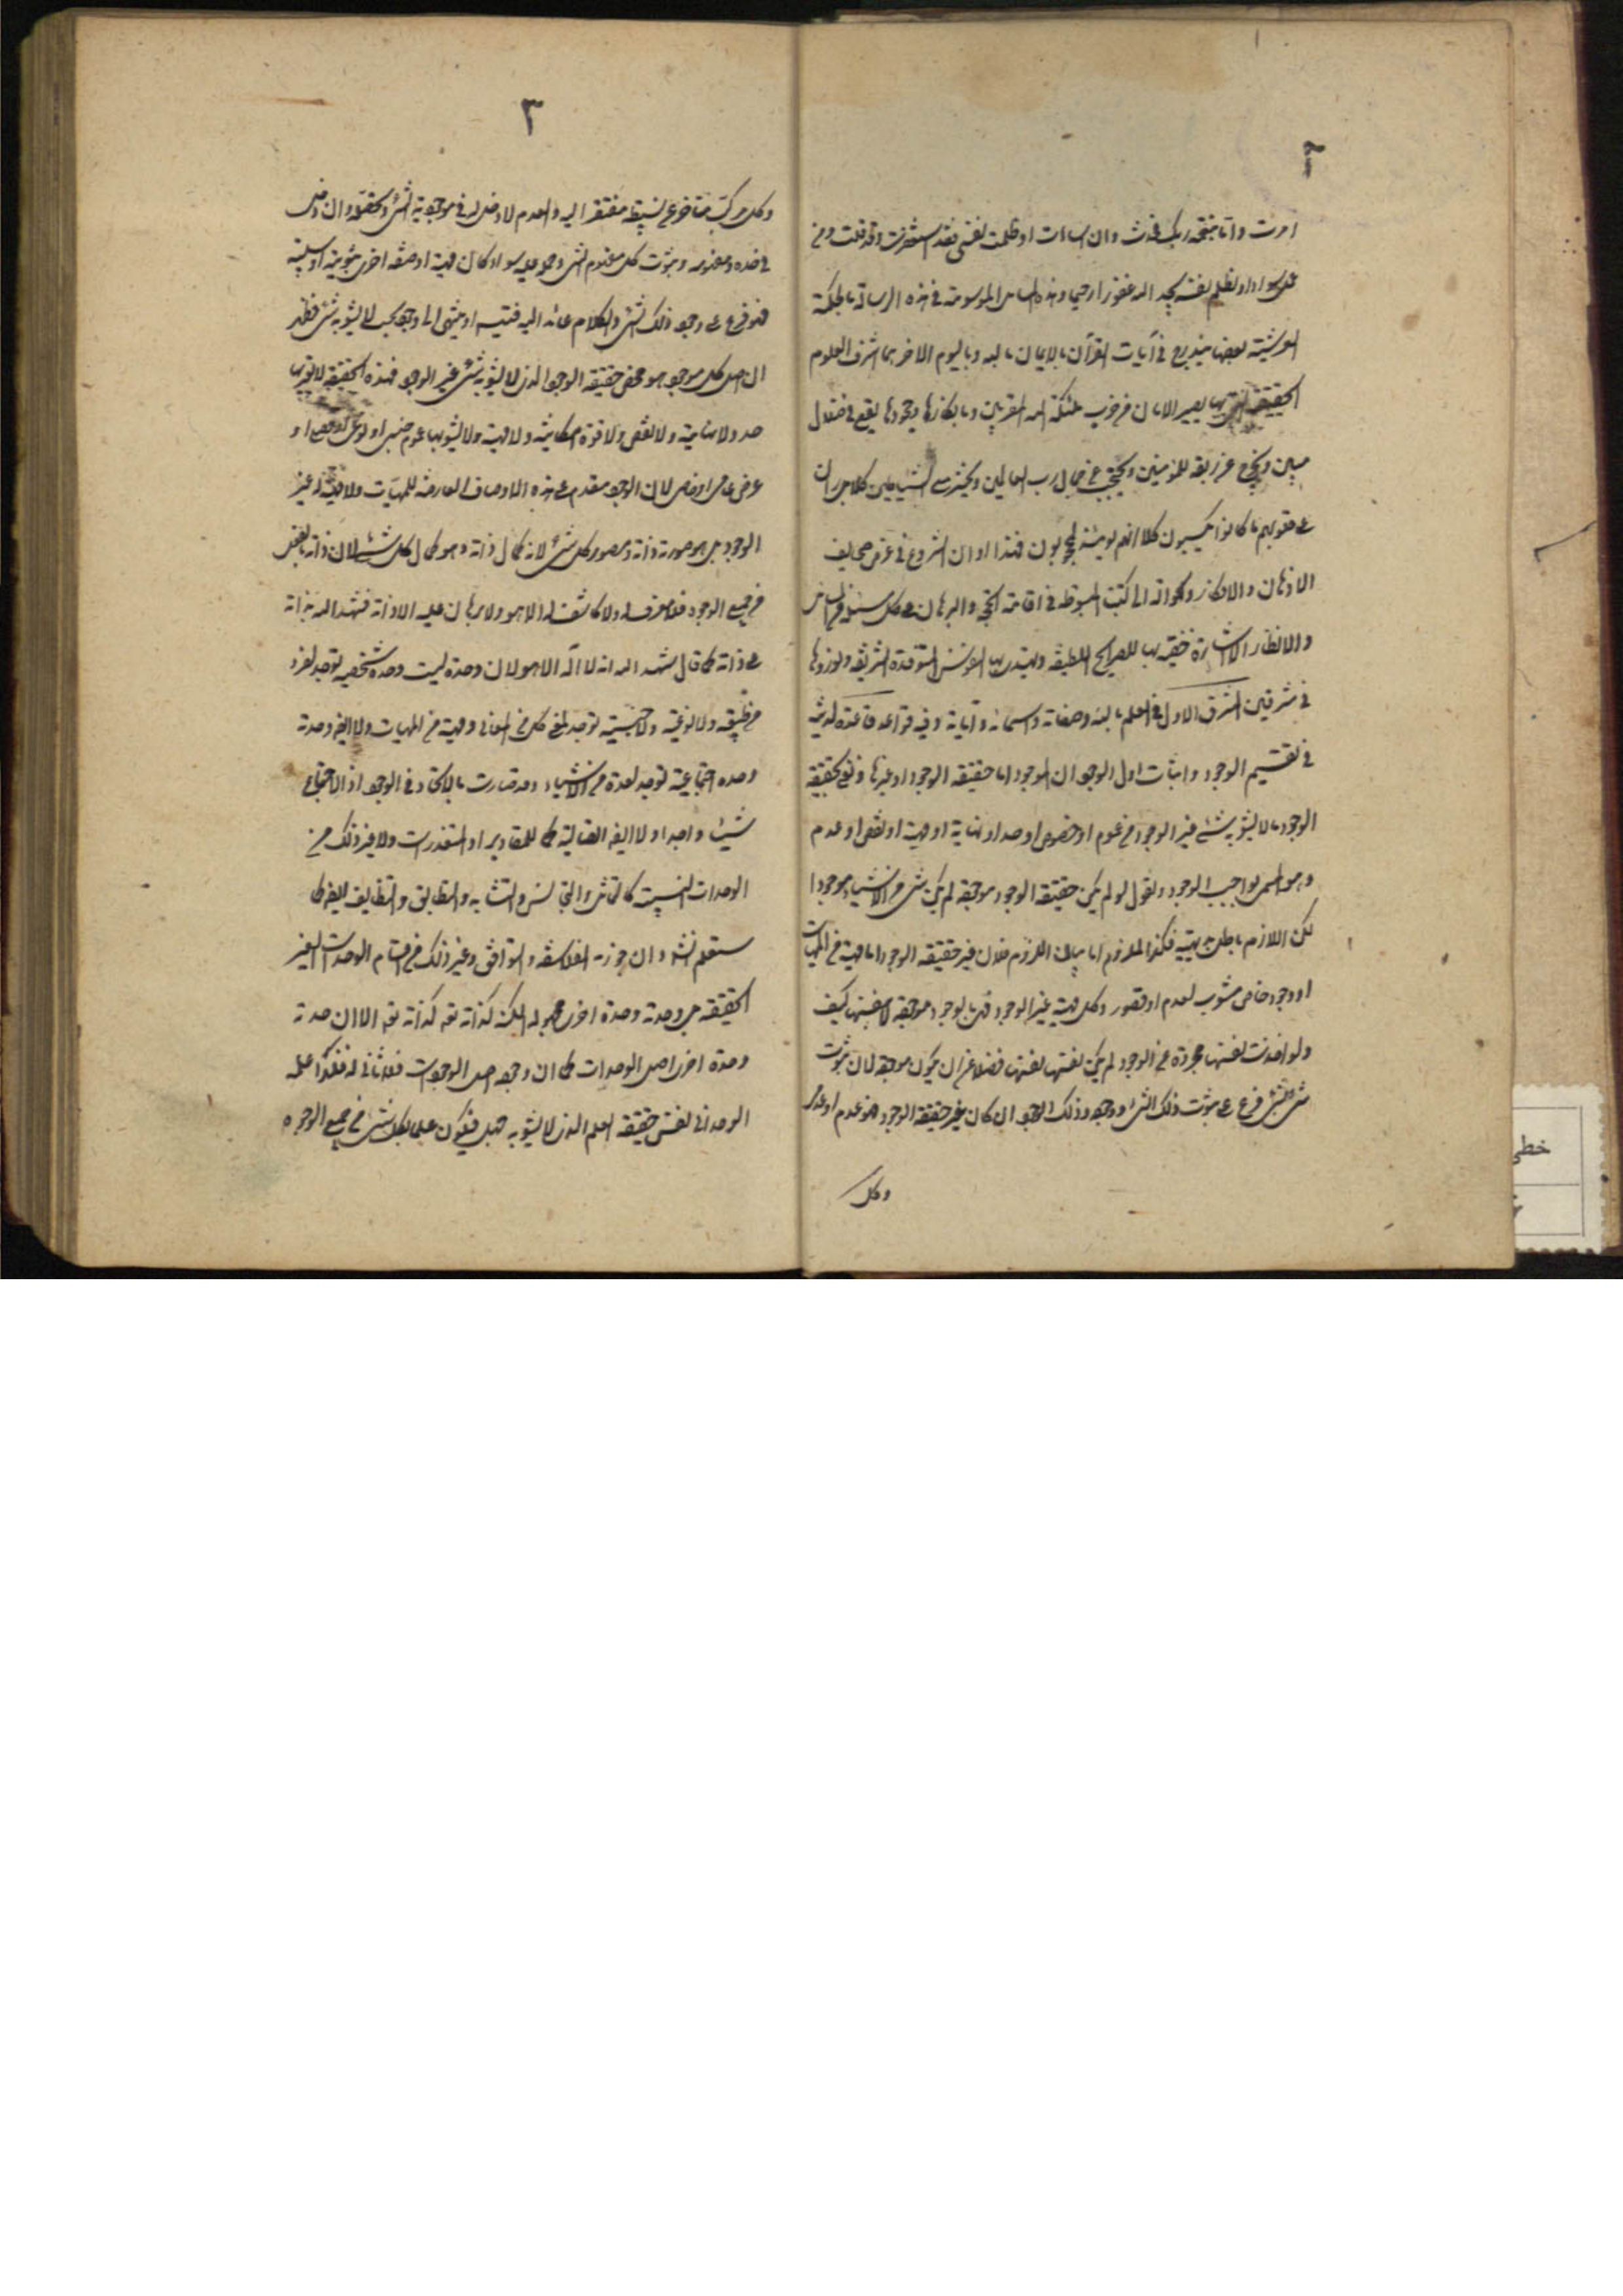 ٢
امرت واما بنعمة ربك فحدث وان اسأت او ظلمت نفسى فقد استغفرت وقد قلت ومن
يعمل سوءا او يظلم نفسه يجد الله غفورا رحيما وهذه المسائل الموسومة فى هذه الرسالة بالحكمة
العرشية بعضها يندرج فى آيات القرآن بالايمان بالله وباليوم الاخر هما اشرف العلوم
الحقيقية التى بها يصير الانسان من حزب ملئكة الله المقربين وبانكارها وجحودها يقع فى ضلال
مبين ويخرج عن ربقة المؤمنين ويحتجب عن جمال رب العالمين ويحشر مع الشياطين كلا بل ران
على قلوبهم ما كانوا يكسبون كلا انهم يومئذ لمحجوبون فهذا اوان الشروع فى عرض صحايف
الاذهان والافكار وكلواته الى كتبنا المبسوطة فى اقامة الحجج والبرهان على كل مسئلة من
والانظار الاشارة خفية بها للقرايح اللطيفة ويهتدى بها النفوس المتوقدة الشريفة ونوردها
فى مشرقين المشرق الاول فى العلم بالله وصفاته واسمائه وآياته وفيه قواعد قاعدة لدنية
فى تقسيم الوجود واثبات اول الوجود ان الموجود اما حقيقة الوجود او غيرها ونعنى بحقيقة
الوجود ما لا يشوبه شئ غير الوجود من عموم او خصوص او حد او نهاية او مهية او نقص او عدم
وهو المسمى بواجب الوجود ونقول لو لم يكن حقيقة الوجود موجودة لم يكن شئ من الاشياء موجودا
لكن اللازم باطل بديهة فكذا الملزوم اما بيان اللزوم فلان غير حقيقة الوجود اما مهية من المهيات
او وجود خاص مشوب بعدم او قصور وكل مهية غير الوجود فهى بالوجود موجودة لا بنفسها كيف
ولو اخذت نفسها مجردة عن الوجود لم يكن نفسها نفسها فضلا عن ان يكون موجودة لان ثبوت
شئ لشئ فرع على ثبوت ذلك الشئ ووجوده وذلك الوجود ان كان غير حقيقة الوجود ففيه عدم او عدمى
وكل
٣
وكل مركب متأخر عن بسيطه مفتقر اليه والعدم لا دخل له فى موجودية الشئ وتحققه وان دخل
فى حده ومفهومه وثبوت كل مفهوم لشئ وحمله عليه سواء كان مهية او صفة اخرى ثبوتية او سلبية
فهو فرع على وجود ذلك الشئ والكلام عائد اليه فيتسلسل او ينتهى الى وجود بحت لا يشوبه شئ فظهر
ان اصل كل موجود هو محض حقيقة الوجود الذى لا يشوبه شئ غير الوجود فهذه الحقيقة لا يعتريها
حد ولا نهاية ولا نقص ولا قوة امكانية ولا مهية ولا يشوبها عموم جنسى او نوعى او فصلى او
عرض عام او خاص لان الوجود مقدم على هذه الاوصاف العارضة للمهيات ولا مهية له غير
الوجود بل هو صورة ذاته ومصور كل شئ لانه كمال ذاته وهو كمال كل شئ لان ذاته بالفعل
من جميع الوجوه فلا معرف له ولا كاشف له الا هو ولا برهان عليه الا ذاته فشهد الله بذاته
على ذاته كما قال شهد الله انه لا اله الا هو لان وحدته ليست وحدة شخصية توجد لفرد
من طبيعة ولا نوعية ولا جنسية توجد لمعنى كلى من المعانى ومهية من المهيات ولا ايضا وحدته
وحدة اجتماعية توجد لعدة من الاشياء وقد صارت بالاتحاد فى الوجود او الاجتماع
شيئا واحدا ولا ايضا اتصالية كما للمقادير او المتقدرات ولا غير ذلك من
الوحدات النسبية كالتماثل والتجانس والتشابه والتطابق والتضايف ايضا كما
ستعلم انشاء وان جوزه الفلاسفة والتوافق وغير ذلك من اقسام الوحدات الغير
الحقيقية بل وحدته وحدة اخرى مجهولة الكنه كذاته تعم كذاته تعم الا ان وحدته
وحدة اخرى اصل الوحدات كما ان وجوده اصل الوجودات فلا ثانى له فهكذا علمه
الوحدانى نفس حقيقة العلم الذى لا يشوبه جهل فيكون علما بكل شئ من جميع الوجوه
خطى